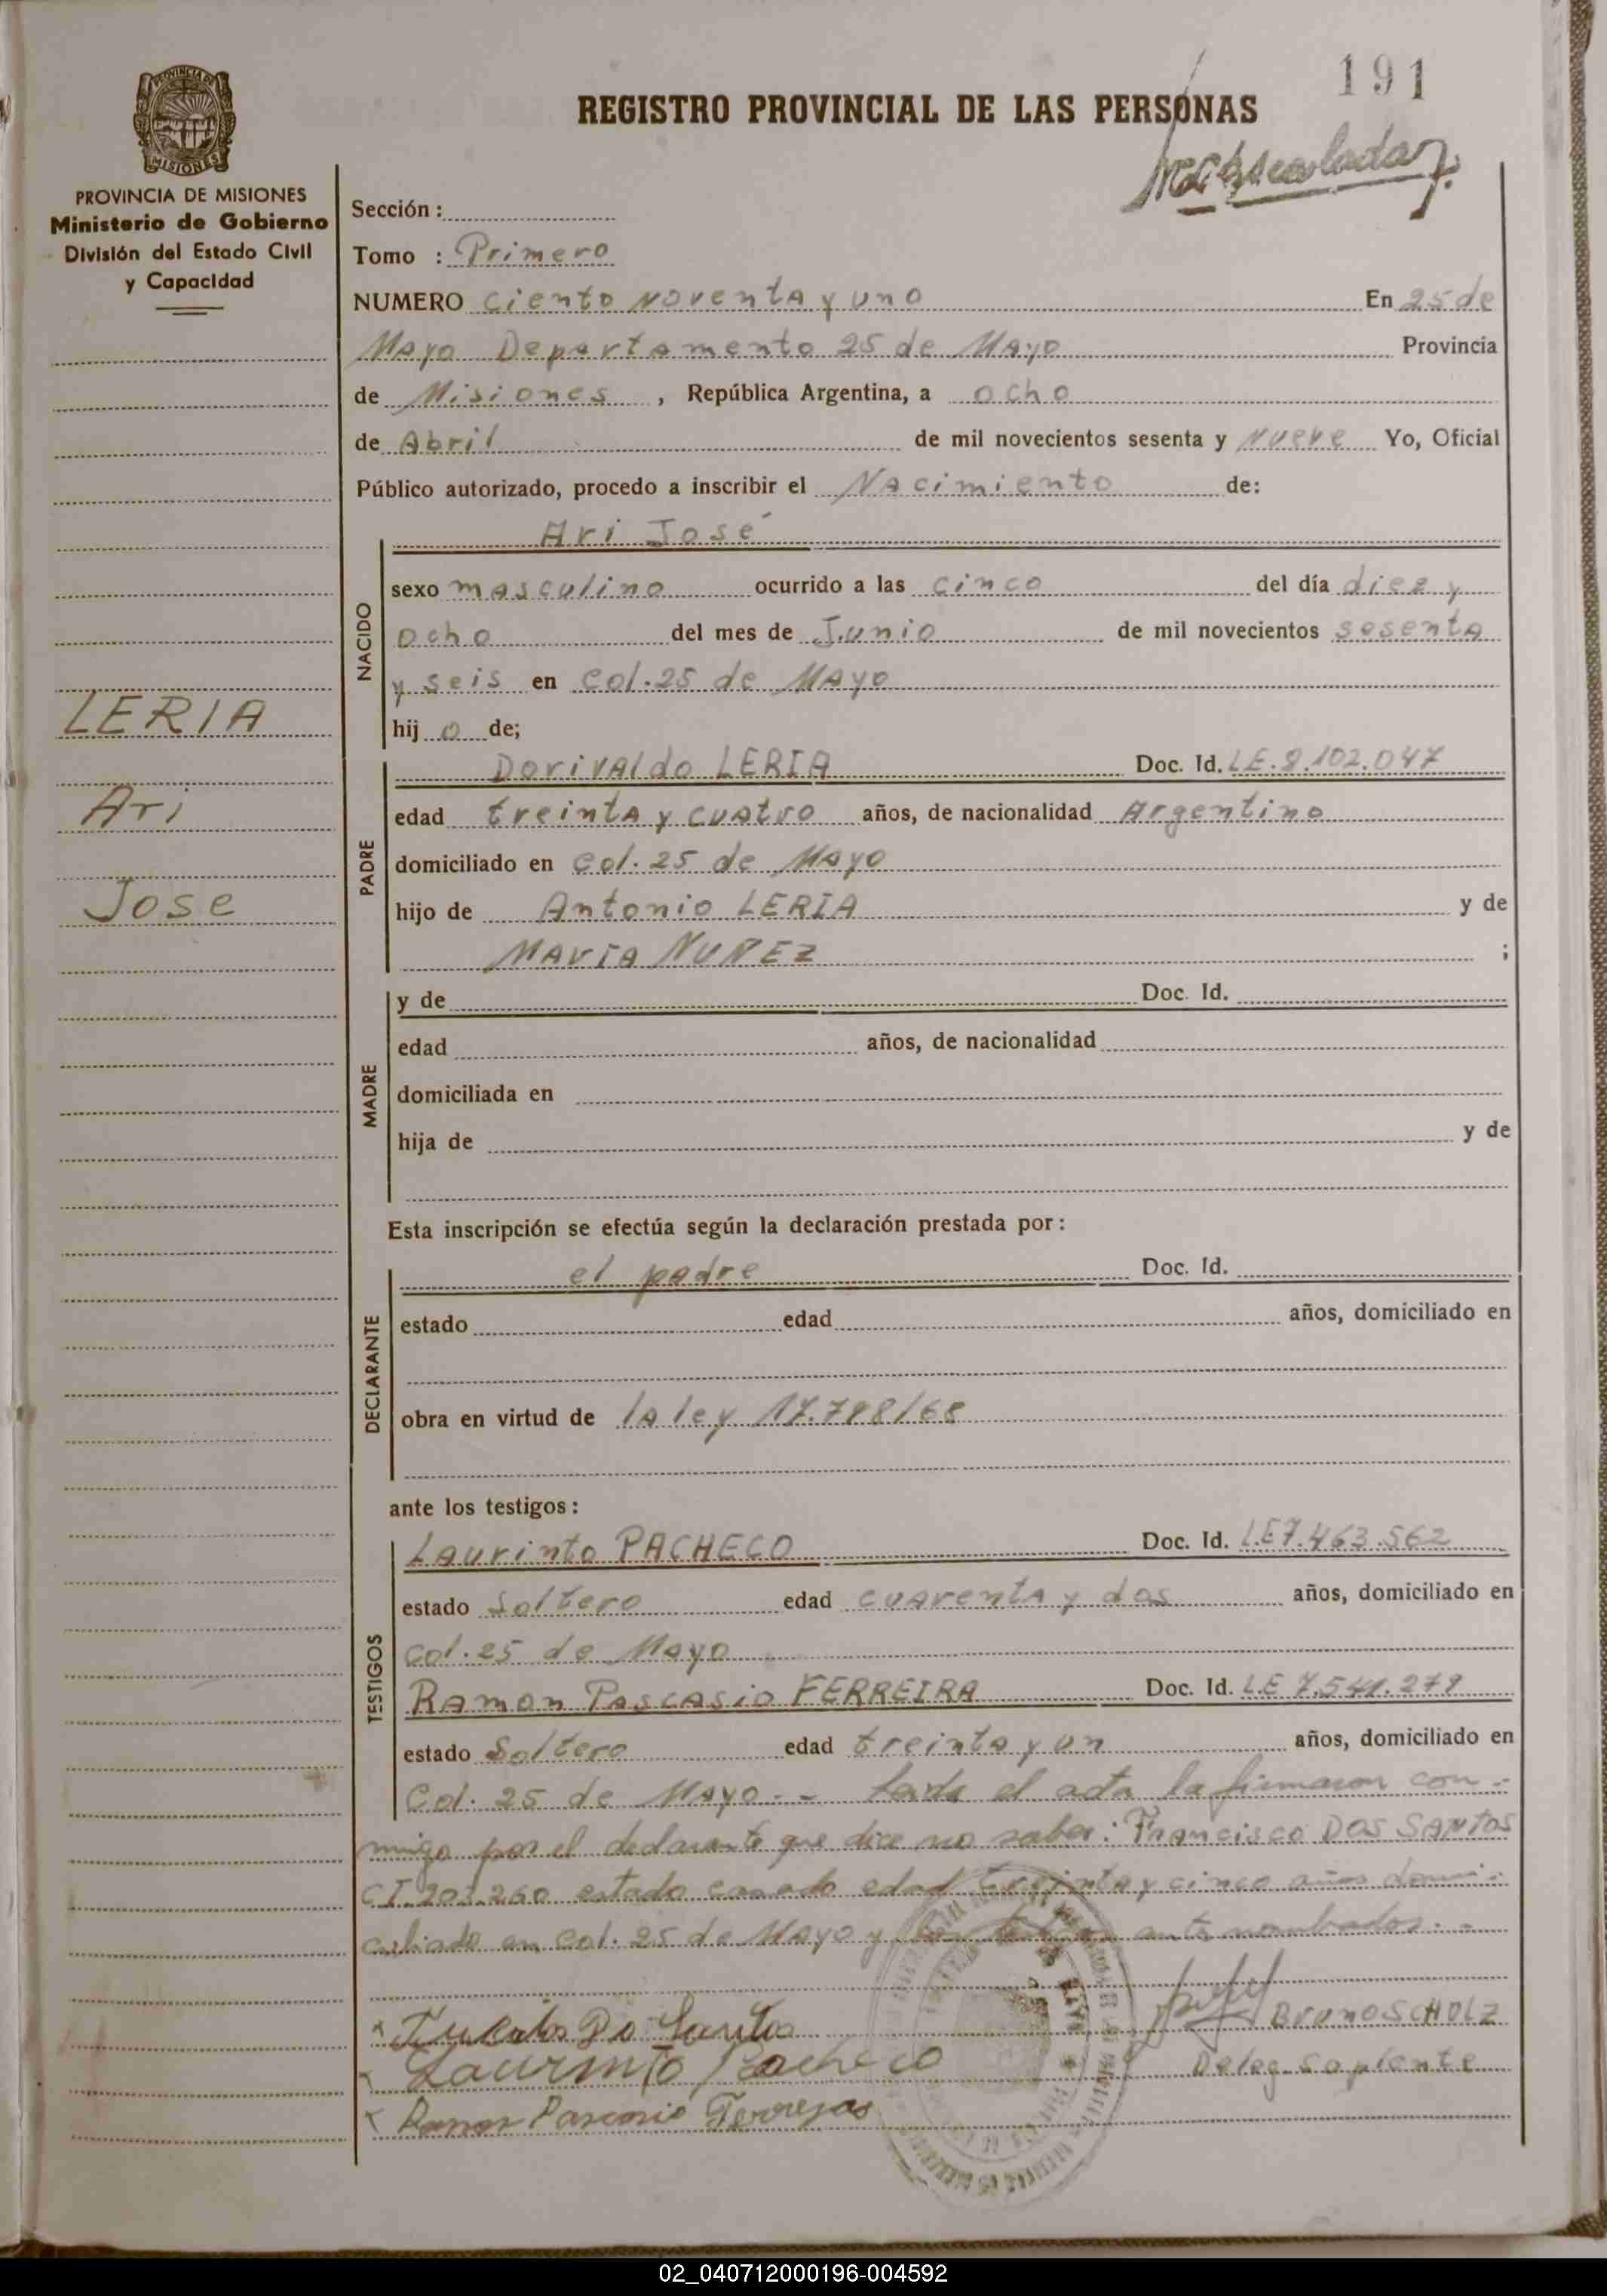 191
REGISTRO PROVINCIAL DE LAS PERSONAS
PROVINCIA DE MISIONES
Ministerio de Gobierno
División del Estado Civil
y Capacidad
Sección :
Tomo : Primero
NUMERO Ciento Noventa y uno En 25 de
Mayo Departamento 25 de Mayo Provincia
de Misiones , República Argentina, a ocho
de Abril de mil novecientos sesenta y Nueve Yo, Oficial
Público autorizado, procedo a inscribir el Nacimiento de:
Ari José
NACIDO
sexo masculino ocurrido a las cinco del día diez y
ocho del mes de Junio de mil novecientos sesenta
y seis en Col. 25 de Mayo
hij o de;
LERIA
Ari
Jose
PADRE
Dorivaldo LERIA Doc. Id. L.E. 8.102.047
edad treinta y cuatro años, de nacionalidad Argentino
domiciliado en Col. 25 de Mayo
hijo de Antonio LERIA y de
Maria NUÑEZ ;
MADRE
y de Doc. Id.
edad años, de nacionalidad
domiciliada en
hija de y de
Esta inscripción se efectúa según la declaración prestada por :
DECLARANTE
el padre Doc. Id.
estado edad años, domiciliado en
obra en virtud de la ley 17.788/68
ante los testigos :
TESTIGOS
Laurinto PACHECO Doc. Id. L.E 7.463.562
estado Soltero edad cuarenta y dos años, domiciliado en
Col. 25 de Mayo
Ramon Pascasio FERREIRA Doc. Id. L.E 7.541.279
estado Soltero edad treinta y un años, domiciliado en
Col. 25 de Mayo.- el acta la firmaron con-
migo por el declarante que dice no saber: Francisco DOS SANTOS
C.I. 203.260 estado casado edad treinta y cinco años domi-
ciliado en Col. 25 de Mayo y ante nombrados.-
Bruno SCHOLZ
Laurinto Pacheco
Deleg. Suplente
Ramon Pascasio
02_040712000196-004592